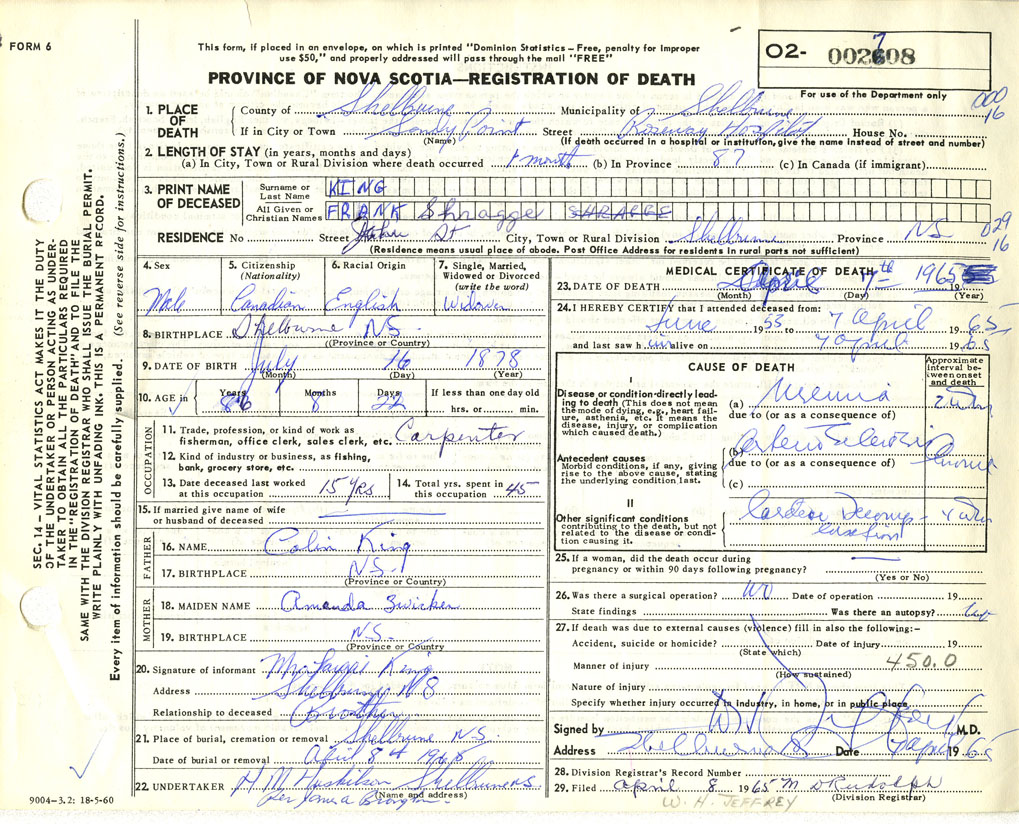 FORM 6
This form, if placed in an envelope, on which is printed "Dominion Statistics – Free, penalty for improper
use $50," and properly addressed will pass through the mail "FREE"
O2- 002708
PROVINCE OF NOVA SCOTIA—REGISTRATION OF DEATH
For use of the Department only
000
16
1. PLACE OF DEATH
County of Shelburne Municipality of Shelburne
If in City or Town Sandy Point Street Roseway Hospital House No.
(Name) (If death occurred in a hospital or institution, give the name instead of street and number)
2. LENGTH OF STAY (in years, months and days)
(a) In City, Town or Rural Division where death occurred 1 month (b) In Province 87 (c) In Canada (if immigrant)
3. PRINT NAME OF DECEASED
Surname or Last Name KING
All Given or Christian Names FRANK Shragge SHRAGGE
RESIDENCE No Street John St City, Town or Rural Division Shelburne Province NS
029
16
(Residence means usual place of abode. Post Office Address for residents in rural parts not sufficient)
4. Sex
Male
5. Citizenship (Nationality)
Canadian
6. Racial Origin
English
7. Single, Married, Widowed or Divorced (write the word)
Widower
8. BIRTHPLACE Shelburne N.S.
(Province or Country)
9. DATE OF BIRTH July 16 1878
(Month) (Day) (Year)
10. AGE in Years 86 Months 8 Days 22 If less than one day old
hrs. or min.
OCCUPATION
11. Trade, profession, or kind of work as fisherman, office clerk, sales clerk, etc. Carpenter
12. Kind of industry or business, as fishing, bank, grocery store, etc.
13. Date deceased last worked at this occupation 15 yrs
14. Total yrs. spent in this occupation 45
15. If married give name of wife or husband of deceased
FATHER
16. NAME Colin King
17. BIRTHPLACE N.S.
(Province or Country)
MOTHER
18. MAIDEN NAME Amanda Zwicker
19. BIRTHPLACE N.S.
(Province or Country)
20. Signature of informant King
Address Shelburne NS
Relationship to deceased Brother
21. Place of burial, cremation or removal Shelburne N.S.
Date of burial or removal April 1965
22. UNDERTAKER H M Huskilson Shelburne NS
(Name and address)
per James A
9004–3.2: 18-5-60
MEDICAL CERTIFICATE OF DEATH
23. DATE OF DEATH April 7th 1965 19
(Month) (Day) (Year)
24. I HEREBY CERTIFY that I attended deceased from:
June 1953 to 7 April 1965
and last saw him alive on 7 April 1965
CAUSE OF DEATH
Approximate interval between onset and death
I
Disease or condition directly leading to death (This does not mean the mode of dying, e.g., heart failure, asthenia, etc. It means the disease, injury, or complication which caused death.)
(a) Uremia
due to (or as a consequence of)
Antecedent causes
Morbid conditions, if any, giving rise to the above cause, stating the underlying condition last.
(b) Arteriosclerosis
due to (or as a consequence of)
(c)
II
Other significant conditions contributing to the death, but not related to the disease or condition causing it.
Cardiac Decompensation
25. If a woman, did the death occur during pregnancy or within 90 days following pregnancy?
(Yes or No)
26. Was there a surgical operation? No Date of operation 19
State findings Was there an autopsy?
27. If death was due to external causes (violence) fill in also the following:–
Accident, suicide or homicide? Date of injury 19
(State which)
Manner of injury 450.0
(How sustained)
Nature of injury
Specify whether injury occurred in industry, in home, or in public place
Signed by M.D.
Address Shelburne NS Date 7 April 1965
28. Division Registrar's Record Number
29. Filed April 8 1965 M D Rudolph
(Division Registrar)
W. H. JEFFREY
SEC. 14 – VITAL STATISTICS ACT MAKES IT THE DUTY
OF THE UNDERTAKER OR PERSON ACTING AS UNDER-
TAKER TO OBTAIN ALL THE PARTICULARS REQUIRED
IN THE "REGISTRATION OF DEATH" AND TO FILE THE
SAME WITH THE DIVISION REGISTRAR WHO SHALL ISSUE THE BURIAL PERMIT.
WRITE PLAINLY WITH UNFADING INK. THIS IS A PERMANENT RECORD.
Every item of information should be carefully supplied. (See reverse side for instructions.)